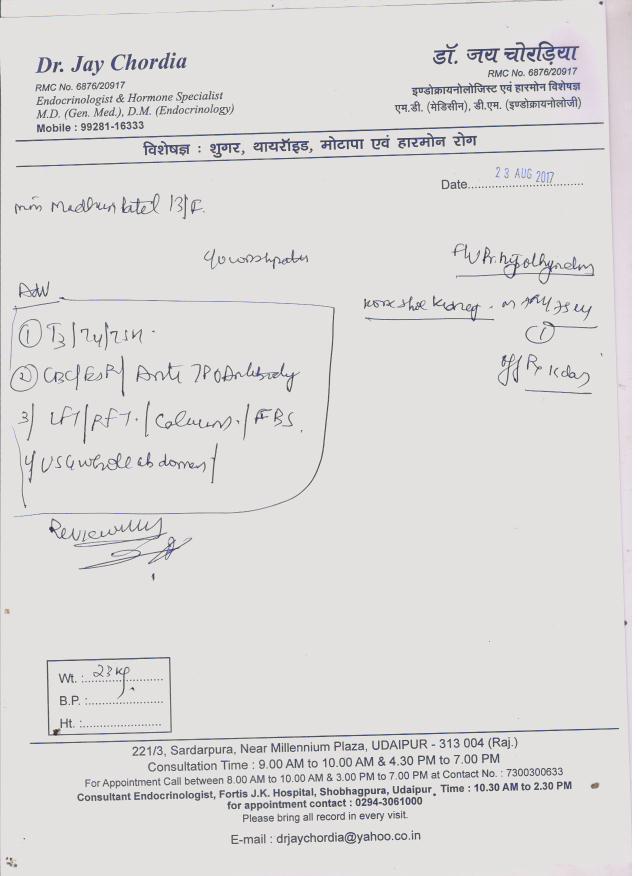 Dr. Jay Chordia
RMC No. 6876/20917
Endocrinologist & Hormone Specialist
M.D. (Gen. Med.), D.M. (Endocrinology)
Mobile : 99281-16333
डॉ. जय चोरड़िया
RMC No. 6876/20917
इण्डोक्रायनोलोजिस्ट एवं हारमोन विशेषज्ञ
एम.डी. (मेडिसीन), डी.एम. (इण्डोक्रायनोलोजी)
विशेषज्ञ : शुगर, थायरॉइड, मोटापा एवं हारमोन रोग
Date 23 AUG 2017
13/F.
Adv
① T3/T4/TSH.
② CBC/ESR/ Anti TPO Antibody
3) LFT/RFT./Calcium./FBS.
4) USG whole abdomen/
Horse shoe kidney.
①
off Rx
Wt. : 23 kg
B.P. :
Ht. :
221/3, Sardarpura, Near Millennium Plaza, UDAIPUR - 313 004 (Raj.)
Consultation Time : 9.00 AM to 10.00 AM & 4.30 PM to 7.00 PM
For Appointment Call between 8.00 AM to 10.00 AM & 3.00 PM to 7.00 PM at Contact No. : 7300300633
Consultant Endocrinologist, Fortis J.K. Hospital, Shobhagpura, Udaipur, Time : 10.30 AM to 2.30 PM
for appointment contact : 0294-3061000
Please bring all record in every visit.
E-mail : drjaychordia@yahoo.co.in